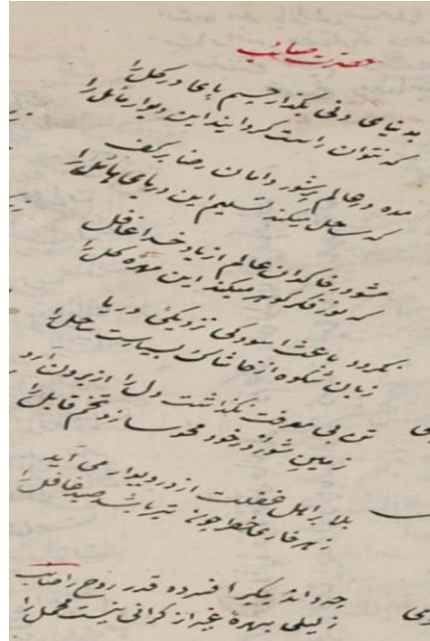 حضرت صائب
بدنیای دنی بگذار جسم پای در کل را
که نتوان راست کردانید این دیوار مائل را
مده در عالم پرشور دامان رضا از کف
که ساحل میکند تسلیم این دریای هائل را
مشو در خاکدان عالم از یاد خدا غافل
که نور ذکر کوهر میکند این مهره کل را
نکردد باعث اسودکی نزدیکی دریا
زبان شکوه از خاشاک بسیارست ساحل را
تن بی معرفت نگذاشت دل را برون ارد
زمین شور در خود محو سازد تخم قابل را
بلا بر اهل غفلت از در و دیوار می آید
ز هر خاری خطر چون تیر باشد صید غافل را
چه داند پیکر افسرده قدر روح را صائب
ز لیلی بهرهٔ غیر از کرانی نیست محمل را